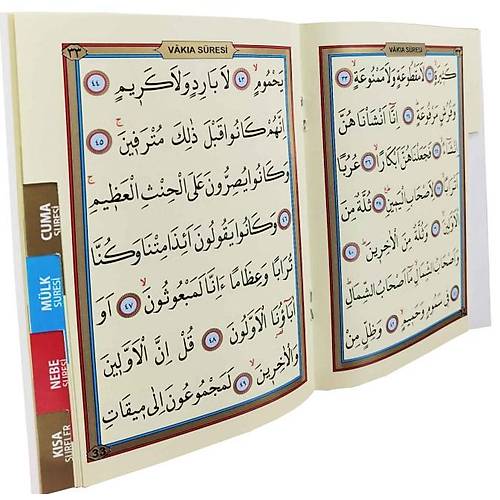 VÂKIA SÛRESİ
كَث۪يرَةٍۙ ﴿٣٢﴾ لَا مَقْطُوعَةٍ وَلَا مَمْنُوعَةٍۙ ﴿٣٣﴾
وَفُرُشٍ مَرْفُوعَةٍۜ ﴿٣٤﴾ اِنَّٓا اَنْشَأْنَاهُنَّ
اِنْشَٓاءًۙ ﴿٣٥﴾ فَجَعَلْنَاهُنَّ اَبْكَارًاۙ ﴿٣٦﴾ عُرُبًا
اَتْرَابًاۙ ﴿٣٧﴾ لِاَصْحَابِ الْيَم۪ينِۜ ﴿٣٨﴾ ثُلَّةٌ مِنَ
الْاَوَّل۪ينَۙ ﴿٣٩﴾ وَثُلَّةٌ مِنَ الْاٰخِر۪ينَۜ ﴿٤٠﴾
وَاَصْحَابُ الشِّمَالِ مَٓا اَصْحَابُ الشِّمَالِۜ ﴿٤١﴾
ف۪ي سَمُومٍ وَحَم۪يمٍۙ ﴿٤٢﴾ وَظِلٍّ مِنْ
٣٣
VÂKIA SÛRESİ
يَحْمُومٍۙ ﴿٤٣﴾ لَا بَارِدٍ وَلَا كَر۪يمٍ ﴿٤٤﴾
اِنَّهُمْ كَانُوا قَبْلَ ذٰلِكَ مُتْرَف۪ينَۚ ﴿٤٥﴾
وَكَانُوا يُصِرُّونَ عَلَى الْحِنْثِ الْعَظ۪يمِۚ
﴿٤٦﴾ وَكَانُوا يَقُولُونَ اَئِذَا مِتْنَا وَكُنَّا
تُرَابًا وَعِظَامًا ءَاِنَّا لَمَبْعُوثُونَۙ ﴿٤٧﴾ اَوَ
اٰبَٓاؤُنَا الْاَوَّلُونَ ﴿٤٨﴾ قُلْ اِنَّ الْاَوَّل۪ينَ
وَالْاٰخِر۪ينَۙ ﴿٤٩﴾ لَمَجْمُوعُونَ اِلٰى م۪يقَاتِ
33
CUMA
SÛRESİ
MÜLK
SURESİ
NEBE
SÛRESİ
KISA
SÛRELER